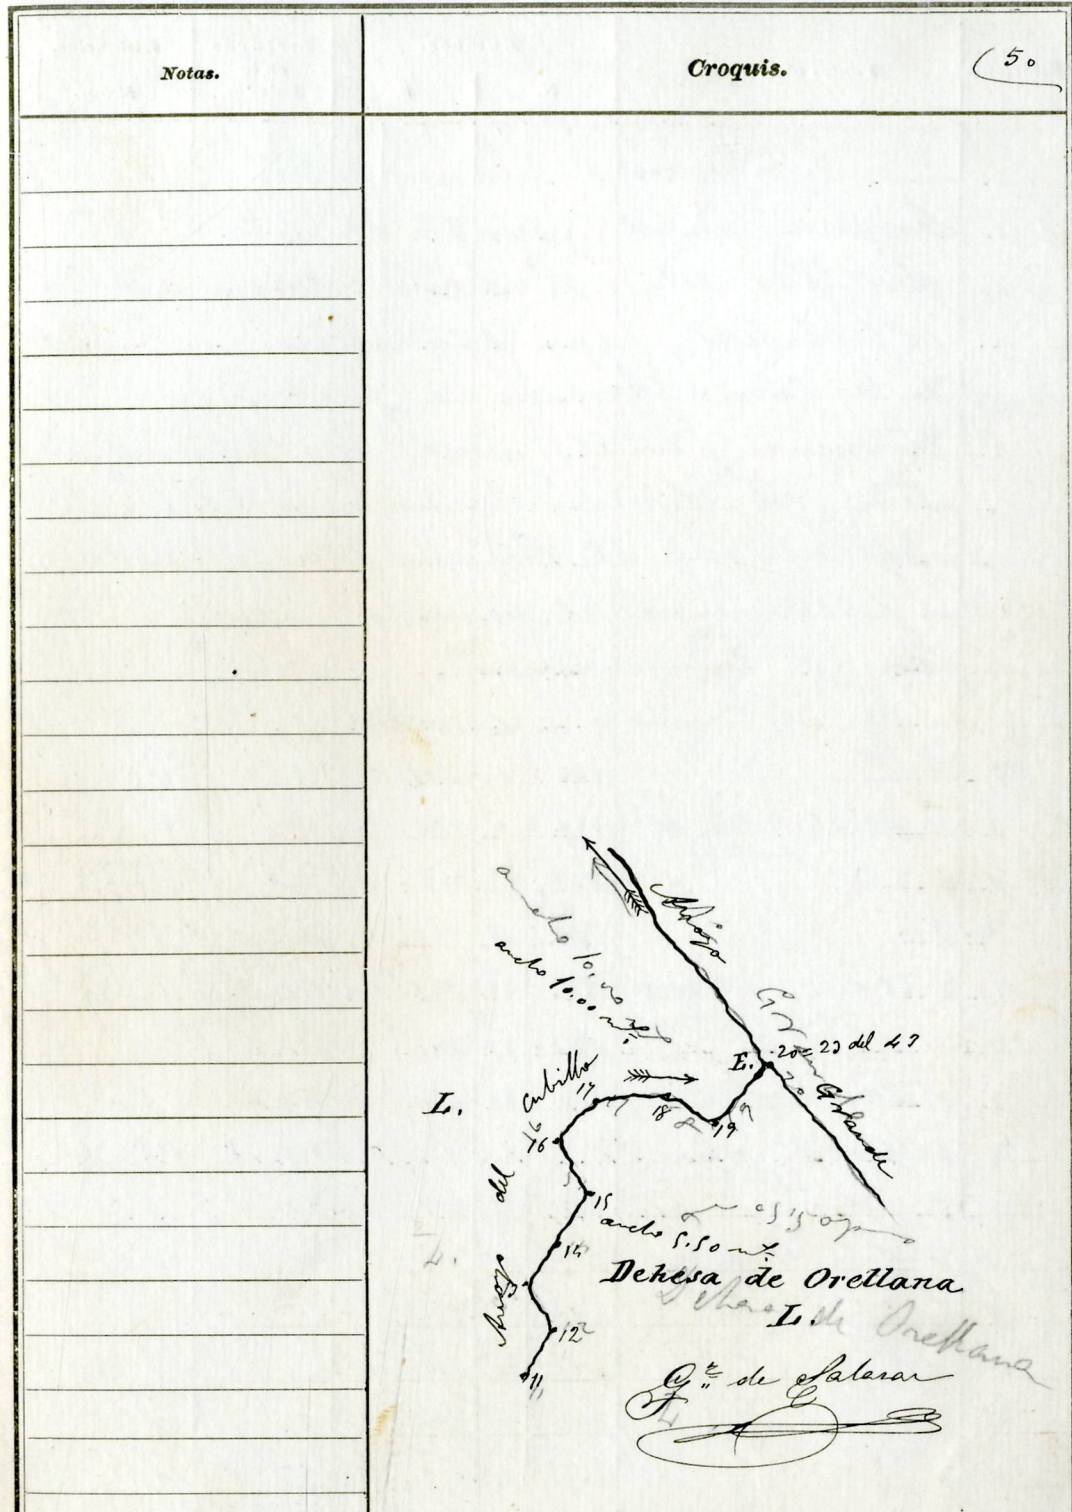 Notas.
Croquis.
50
Arroyo
Grande
ancho 10.00 mt.
ancho 10.00 mt.
E.
20 = 23 del 43
20
Grande
L.
Arroyo del Cubillo
17
18
8
19
9
16
16
15
ancho 5.50 mt.
ancho 5.50 m
14
Dehesa de Orellana
Dehesa de Orellana
L.
L.
12
11
Gz. de Salazar